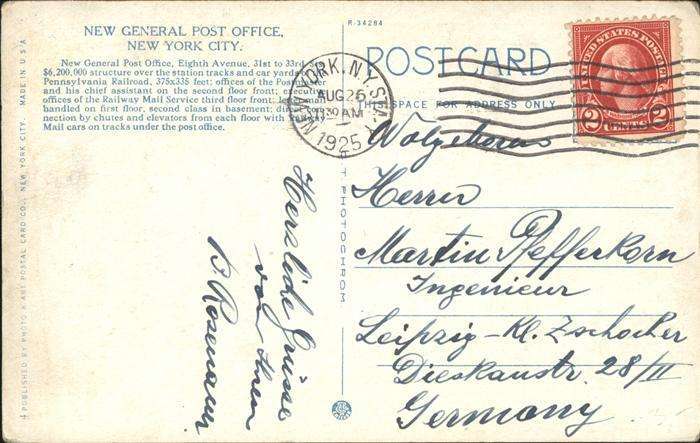 NEW GENERAL POST OFFICE,
NEW YORK CITY.
New General Post Office, Eighth Avenue, 31st to 33rd
$6,200,000 structure over the station tracks and car yards of
Pennsylvania Railroad, 375x335 feet; offices of the Postmaster
and his chief assistant on the second floor front; executive
offices of the Railway Mail Service third floor front.
handled on first floor, second class in basement;
nection by chutes and elevators from each floor with
Mail cars on tracks under the post office.
4 PUBLISHED BY PHOTO & ART POSTAL CARD CO., NEW YORK CITY. MADE IN U.S.A.
Herzliche Grüsse
von Ihren
B. Rosemann
R-34284
POSTCARD
THIS SPACE FOR ADDRESS ONLY
PHOTOCHROM
NEW YORK, N.Y. STA.
AUG 26
30 AM
1925
UNITED STATES POSTAGE
2 CENTS 2
Herrn
Martin Pfefferkorn
Ingenieur
Leipzig-Kl. Zschocher
Dieskaustr. 28/III
Germany